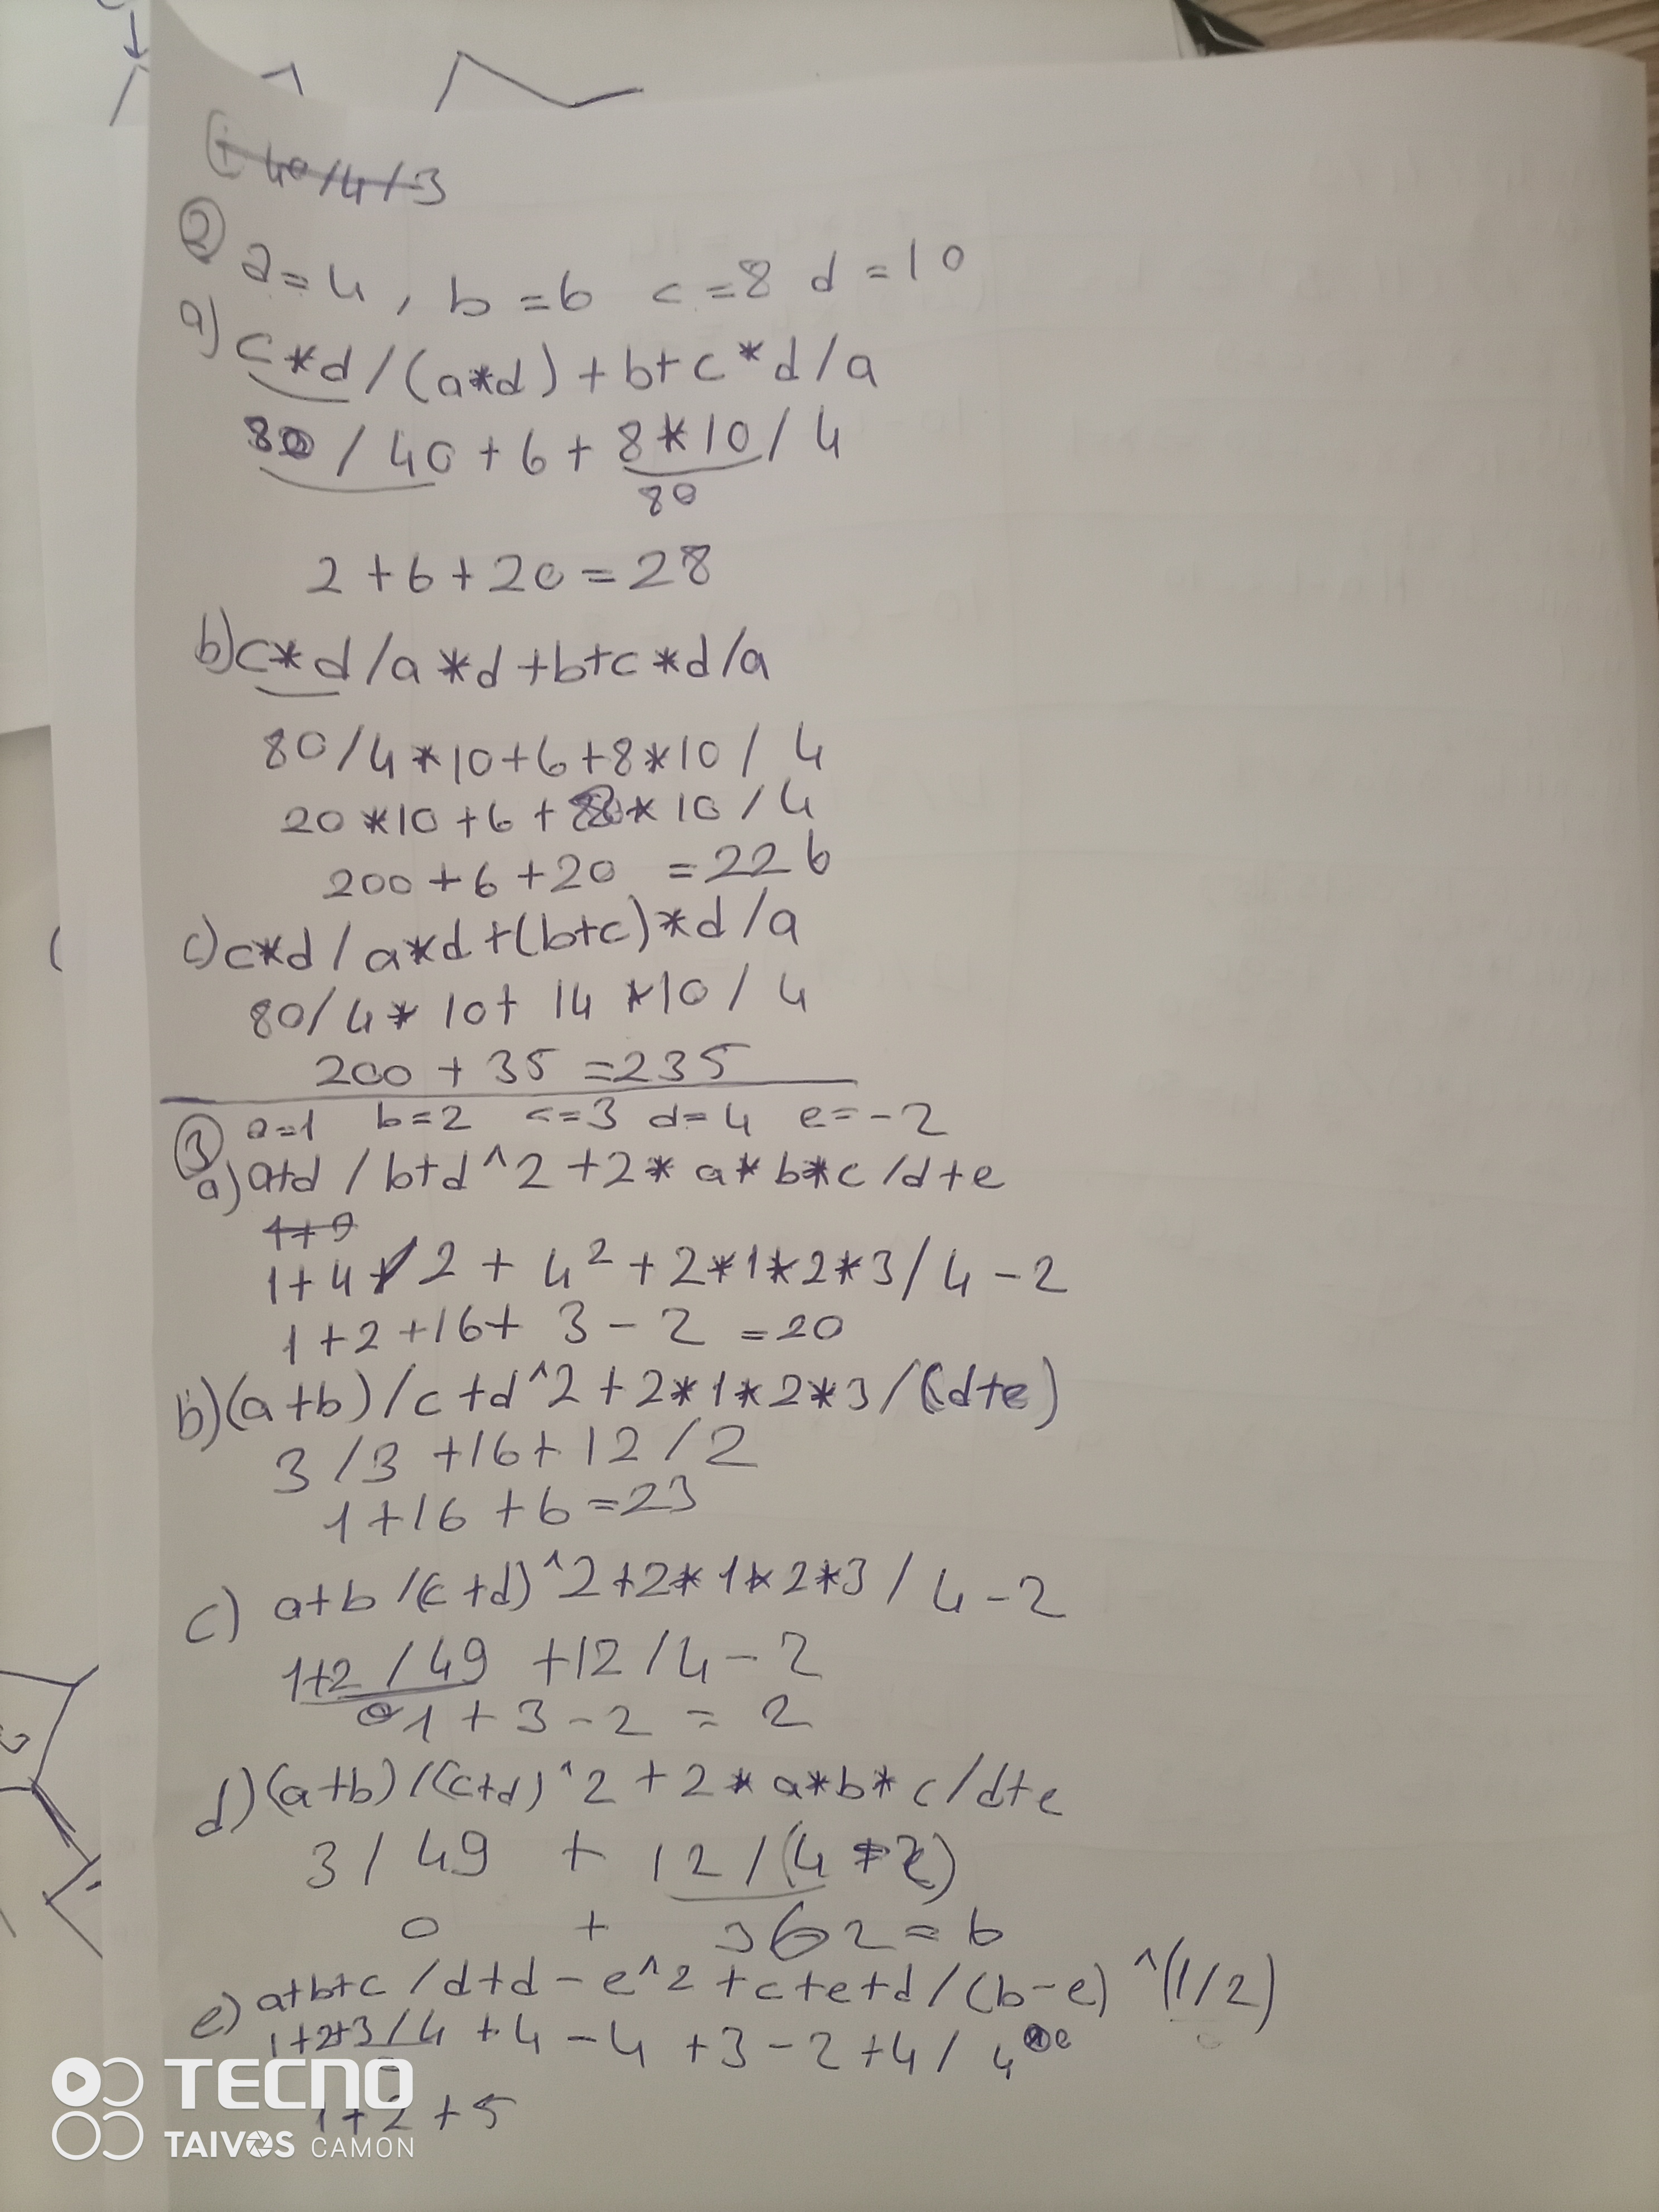 40/4/-3
②
a=4, b=6 c=8 d=10
a) c*d/(a*d)+b+c*d/a
80/40+6+8*10/4
80
2+6+20=28
b) c*d/a*d+b+c*d/a
80/4*10+6+8*10/4
20*10+6+8*10/4
200+6+20 =226
c) c*d/a*d+(b+c)*d/a
80/4*10+14*10/4
200+35=235
③ a=1 b=2 c=3 d=4 e=-2
a) a+d/b+d^2+2*a*b*c/d+e
1+4/2+4²+2*1*2*3/4-2
1+2+16+3-2=20
b) (a+b)/c+d^2+2*1*2*3/(d+e)
3/3+16+12/2
1+16+6=23
c) a+b/(c+d)^2+2*1*2*3/4-2
1+2/49+12/4-2
1+3-2=2
d) (a+b)/(c+d)^2+2*a*b*c/d+e
3/49 + 12/(4-2)
0 + 6 = 6
e) a+b+c/d+d-e^2+c+e+d/(b-e)^(1/2)
1+2+3/4+4-4+3-2+4/4
1+2+5
TECNO
TAIVOS CAMON